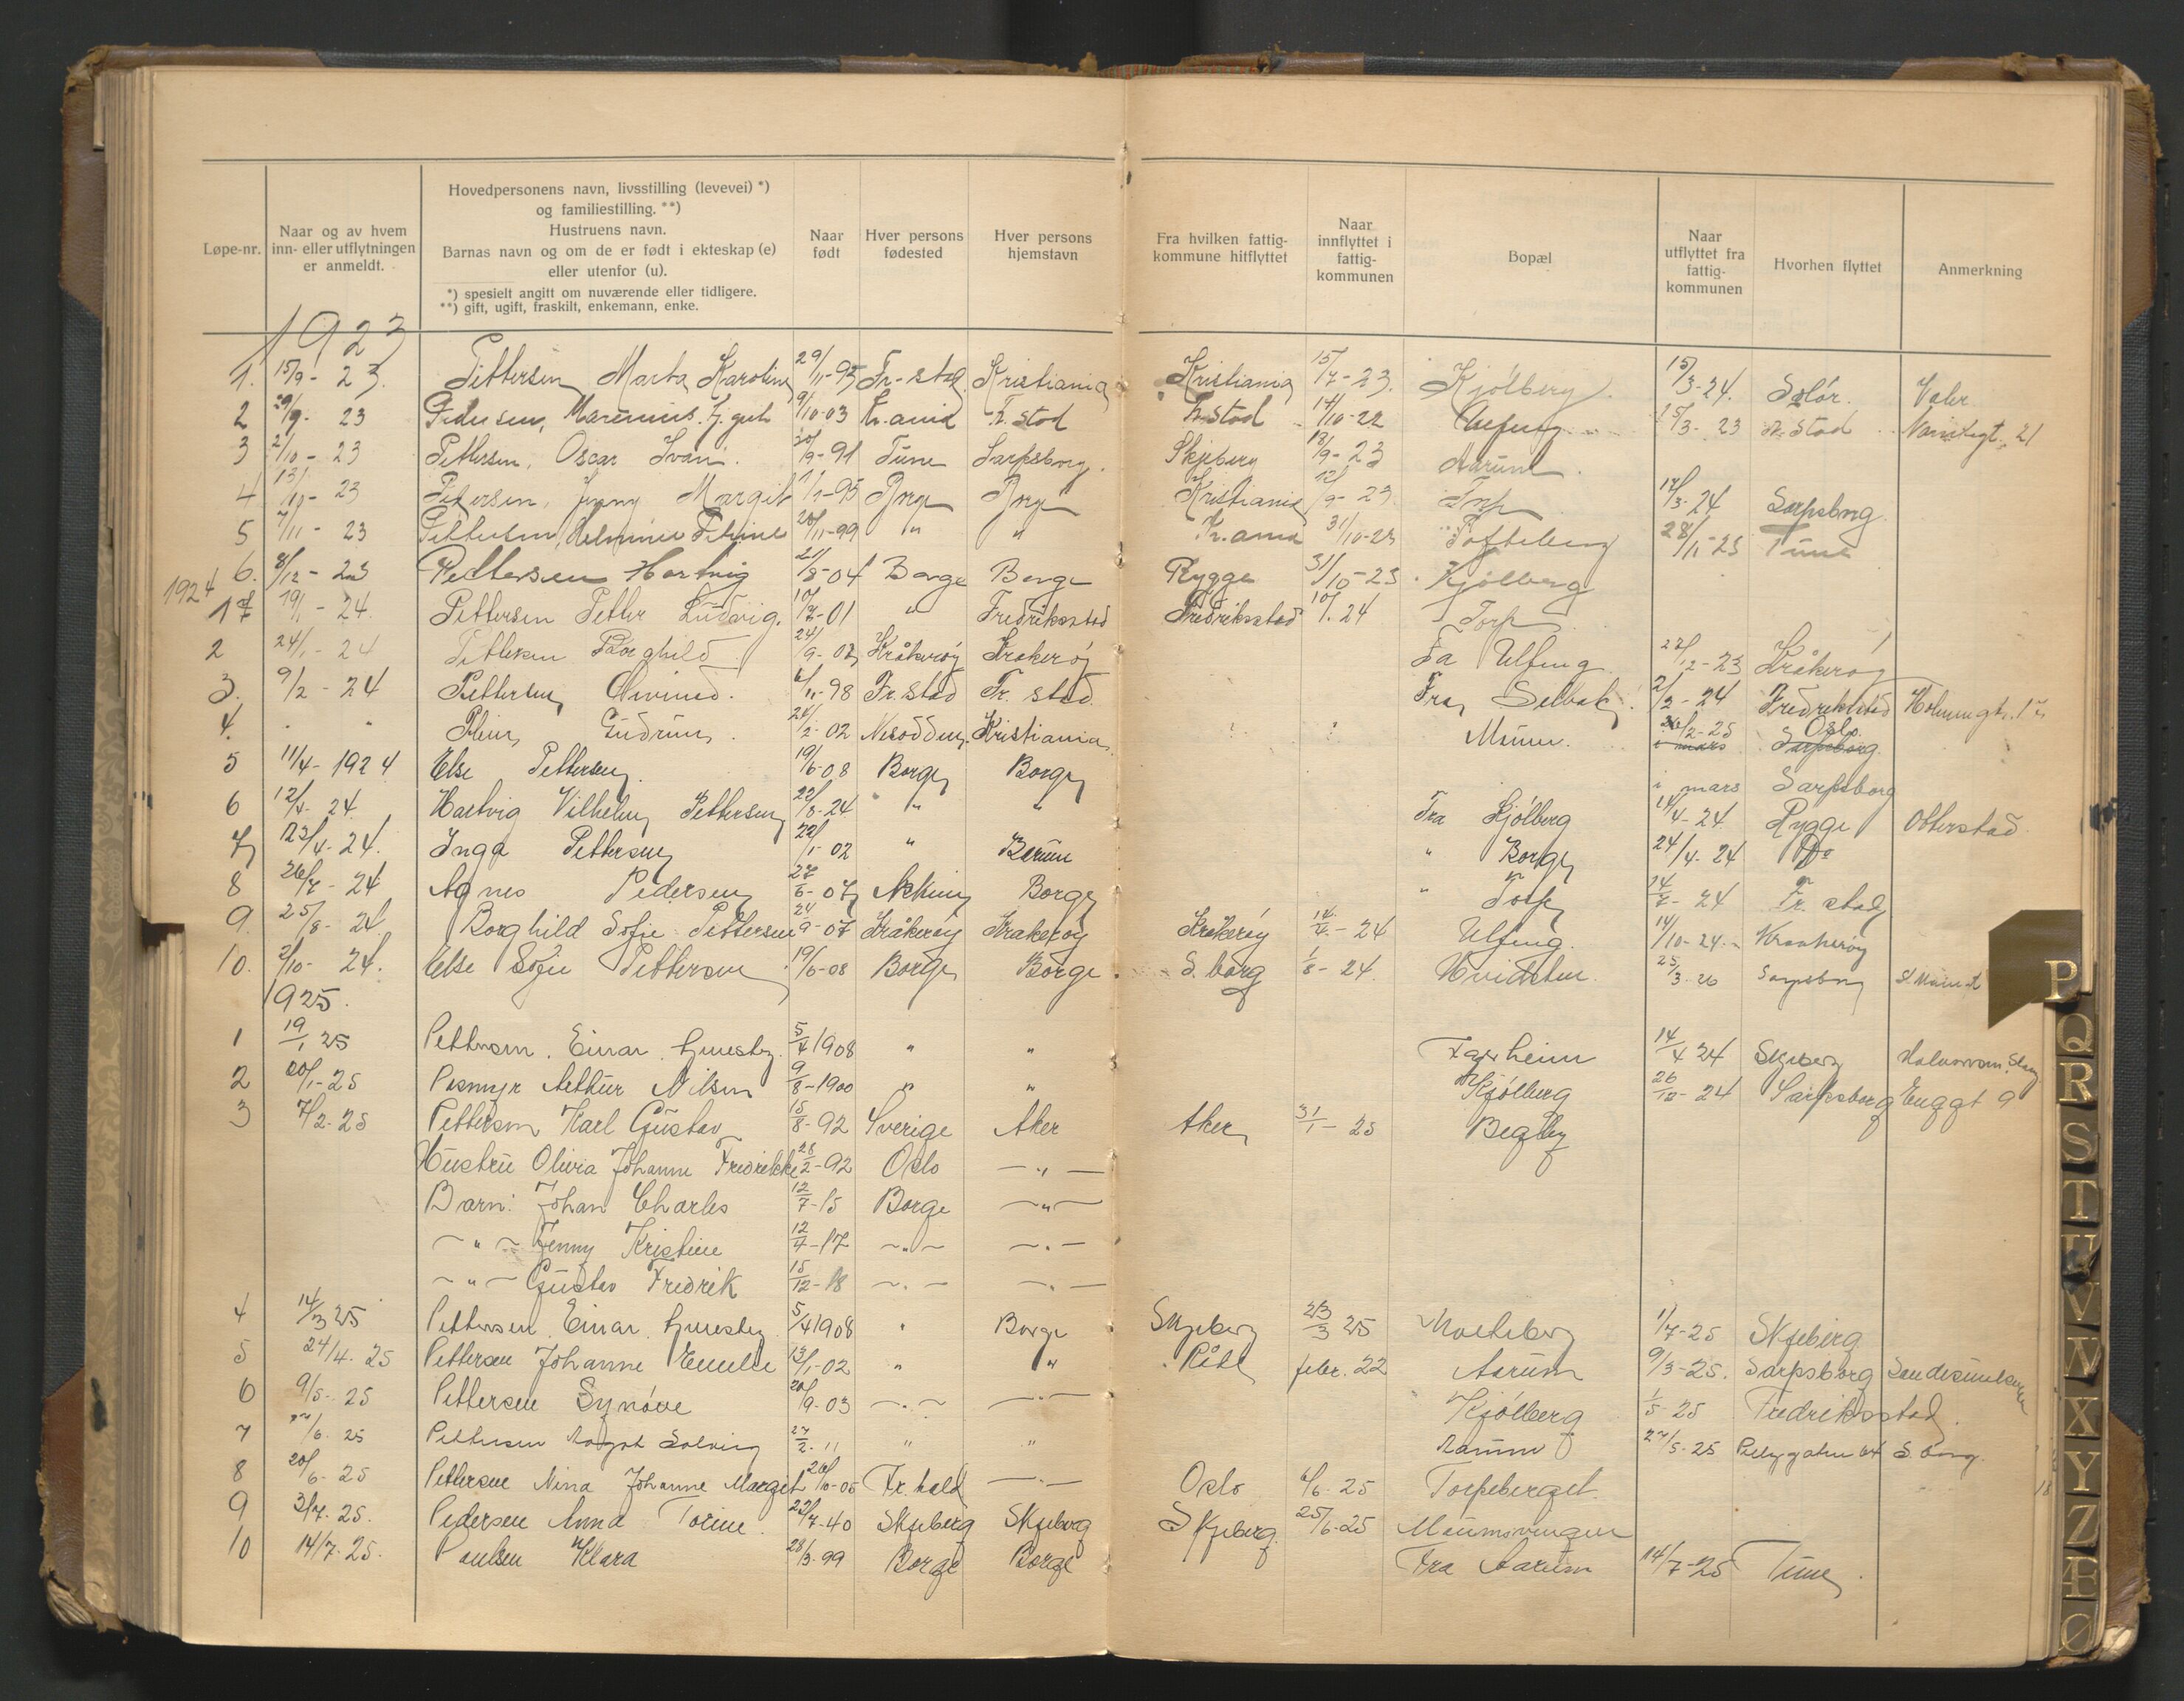 Løpe-nr.
Naar og av hvem
inn- eller utflytningen
er anmeldt.
Hovedpersonens navn, livsstilling (levevei) *)
og familiestilling. **)
Hustruens navn.
Barnas navn og om de er født i ekteskap (e)
eller utenfor (u).
*) spesielt angitt om nuværende eller tidligere.
**) gift, ugift, fraskilt, enkemann, enke.
Naar
født
Hver persons
fødested
Hver persons
hjemstavn
Fra hvilken fattig-
kommune hitflyttet
Naar
innflyttet i
fattig-
kommunen
Bopæl
Naar
utflyttet fra
fattig-
kommunen
Hvorhen flyttet
Anmerkning
1923
1. 15/9 - 23. Pettersen Marta Karoline 29/11-95 Fr-stad Kristiania Kristiania 15/7-23. Kjölberg 15/3-24. Solör. Valer
2 29/9- 23 Pedersen, Marenius 9/10-03 Kr.ania Fr. stod Fr. stod 14/10-22 15/3- 23 Fr. Stod 21
3 2/10 - 23 Pettersen, Oscar Ivan. 9-91 Tune Sarpsborg. Skjeberg 18/9-23 Aarum.
4 13/10- 23 Petersen, Jenny Margit 1-95 Borge Borge Kristiania 12/9-23 Torp 3-24 Sarpsborg
5 7/11 - 23 Pettersen, 20/11-99 " " Kr.ania 31/10-23 28/11-23 Tune
6. 8/12 - 23 Pettersen Hartvig 21/8-04 Borge Borge Rygge 31/10-23. Kjölberg
1924
1 19/1 - 24. Pettersen Petter Ludvig. 7-01 " Fredriksstad Fredriksstad 10/1. 24 Torp
2 24/1 - 24 Pettersen Borghild 24/9-07 Kråkeröy Krakeröy Fa Ulfeng 12-23 Kråkeröy
3. 9/2 - 24 Pettersen 6/11-98 Fr. stad Fr. stad. Fra Selbak. 2/2-24 Fredrikstad
4. " " Gudrun 24/2-02 Nesodden Kristiania 2-25 Oslo
i mars Sarpsborg
5 11/4-1924 Else Pettersen. 19/6-08 Borge Borge i mars Sarpsborg
6 12/4- 24. Hartvig Vilhelm Pettersen 22/8-24 " " Fra Kjölberg 4-24 Rygge Otterstad
7 23/4-24. Inga Pettersen 22/1-02 " Berum " Borge 24/4-24 Do
8 26/7-24 Agnes Pedersen 27/6-07 Borge " Torp 14/7-24 Fr. stad
9. 25/8-24. Borghild Sofie Pettersen 24/9-07 Kråkeröy Krakeröy Kråkeröy 14/7-24 Ulfeng. 14/10-24. Kraakeröy
10. 2/10- 24. Else Sofie Pettersen 19/6-08 Borge Borge S. borg 1/8-24. Hvidsten 25/3-26 Sarpsborg
1925.
1 19/1 25 Pettersen. Einar. 5/4 1908 " " Fagerheim 14/4 24 Skjeberg
2 20/1-25 Arthur Nilsen 9/8-1900 " " Kjölberg 26/12-24 Sarpsborg Enggt 9
3 7/2-25 Pettersen Karl Gustav 15/8-92 Sverige Aker Aker 31/1-25 Begby
Hustru Olivia Johanne Fredrikke 28/2-92 Oslo — " —
Barn: Johan Charles 12/7-15 Borge — " —
— " — Jenny Kristine 12/4-17 — " — — " —
— " — Gustav Fredrik 15/12-18 — " — — " —
4 14/3 25 Pettersen. Einar. 5/4 1908 " Borge Skjeberg 23/3 25 1/7-25 Skjeberg
5 24/4. 25 Pettersen Johanne Emelie 13/1-02 " " febr. 22 Aarum 9/3-25. Sarpsborg
6 9/5-25 Pettersen Synöve 20/9-03 — " — — " — Kjölberg 1/5-25 Fredriksstad.
7 6. 25 Pettersen Solveig 27/2. 11 " " Aarum 27/5-25 S. borg.
8 20/6-25 Pettersen Nina Johanne Margit 10-05 Fr. hald — " — Oslo 6/6. 25 Torpeberget.
9 3/7-25. Pedersen Anna Torine. 22/7-40 Skjeberg Skjeberg Skjeberg. 25/6-25
10 14/7-25. Paulsen Klara 28/3-99 Borge Borge Fra Aarum 14/7-25 Tune.
P
Q
R
S
T
U
V
W
X
Y
Z
Æ
Ø